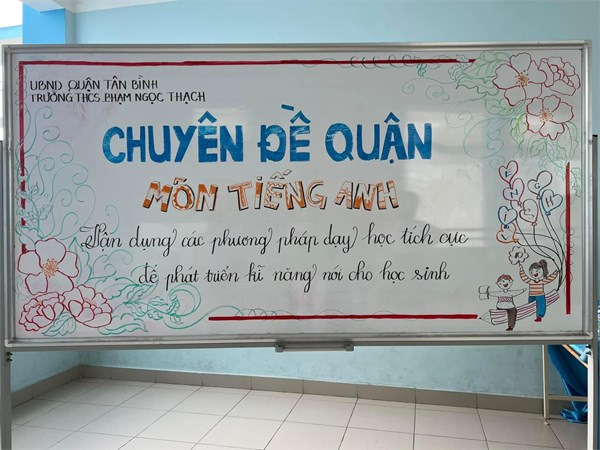 UBND QUẬN TÂN BÌNH
TRƯỜNG THCS PHẠM NGỌC THẠCH
CHUYÊN ĐỀ QUẬN
MÔN TIẾNG ANH
dụng các phương pháp dạy học tích cực
để phát triển kĩ năng nói cho học sinh